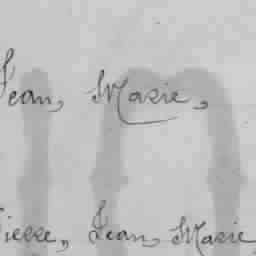 Jean, Marie,
Pierre, Jean, Marie